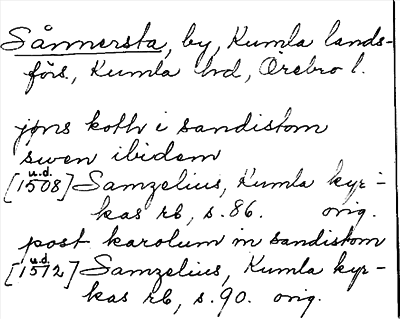 Sånnersta, by, Kumla lands-
förs., Kumla hd, Örebro l.
jøns koth i sandistom
swen ibidem
u.d.
[1508] Samzelius, Kumla kyr-
kas rb, s. 86. orig.
post karolum in sandistom
u.d.
[1512] Samzelius, Kumla kyr-
kas rb, s. 90. orig.